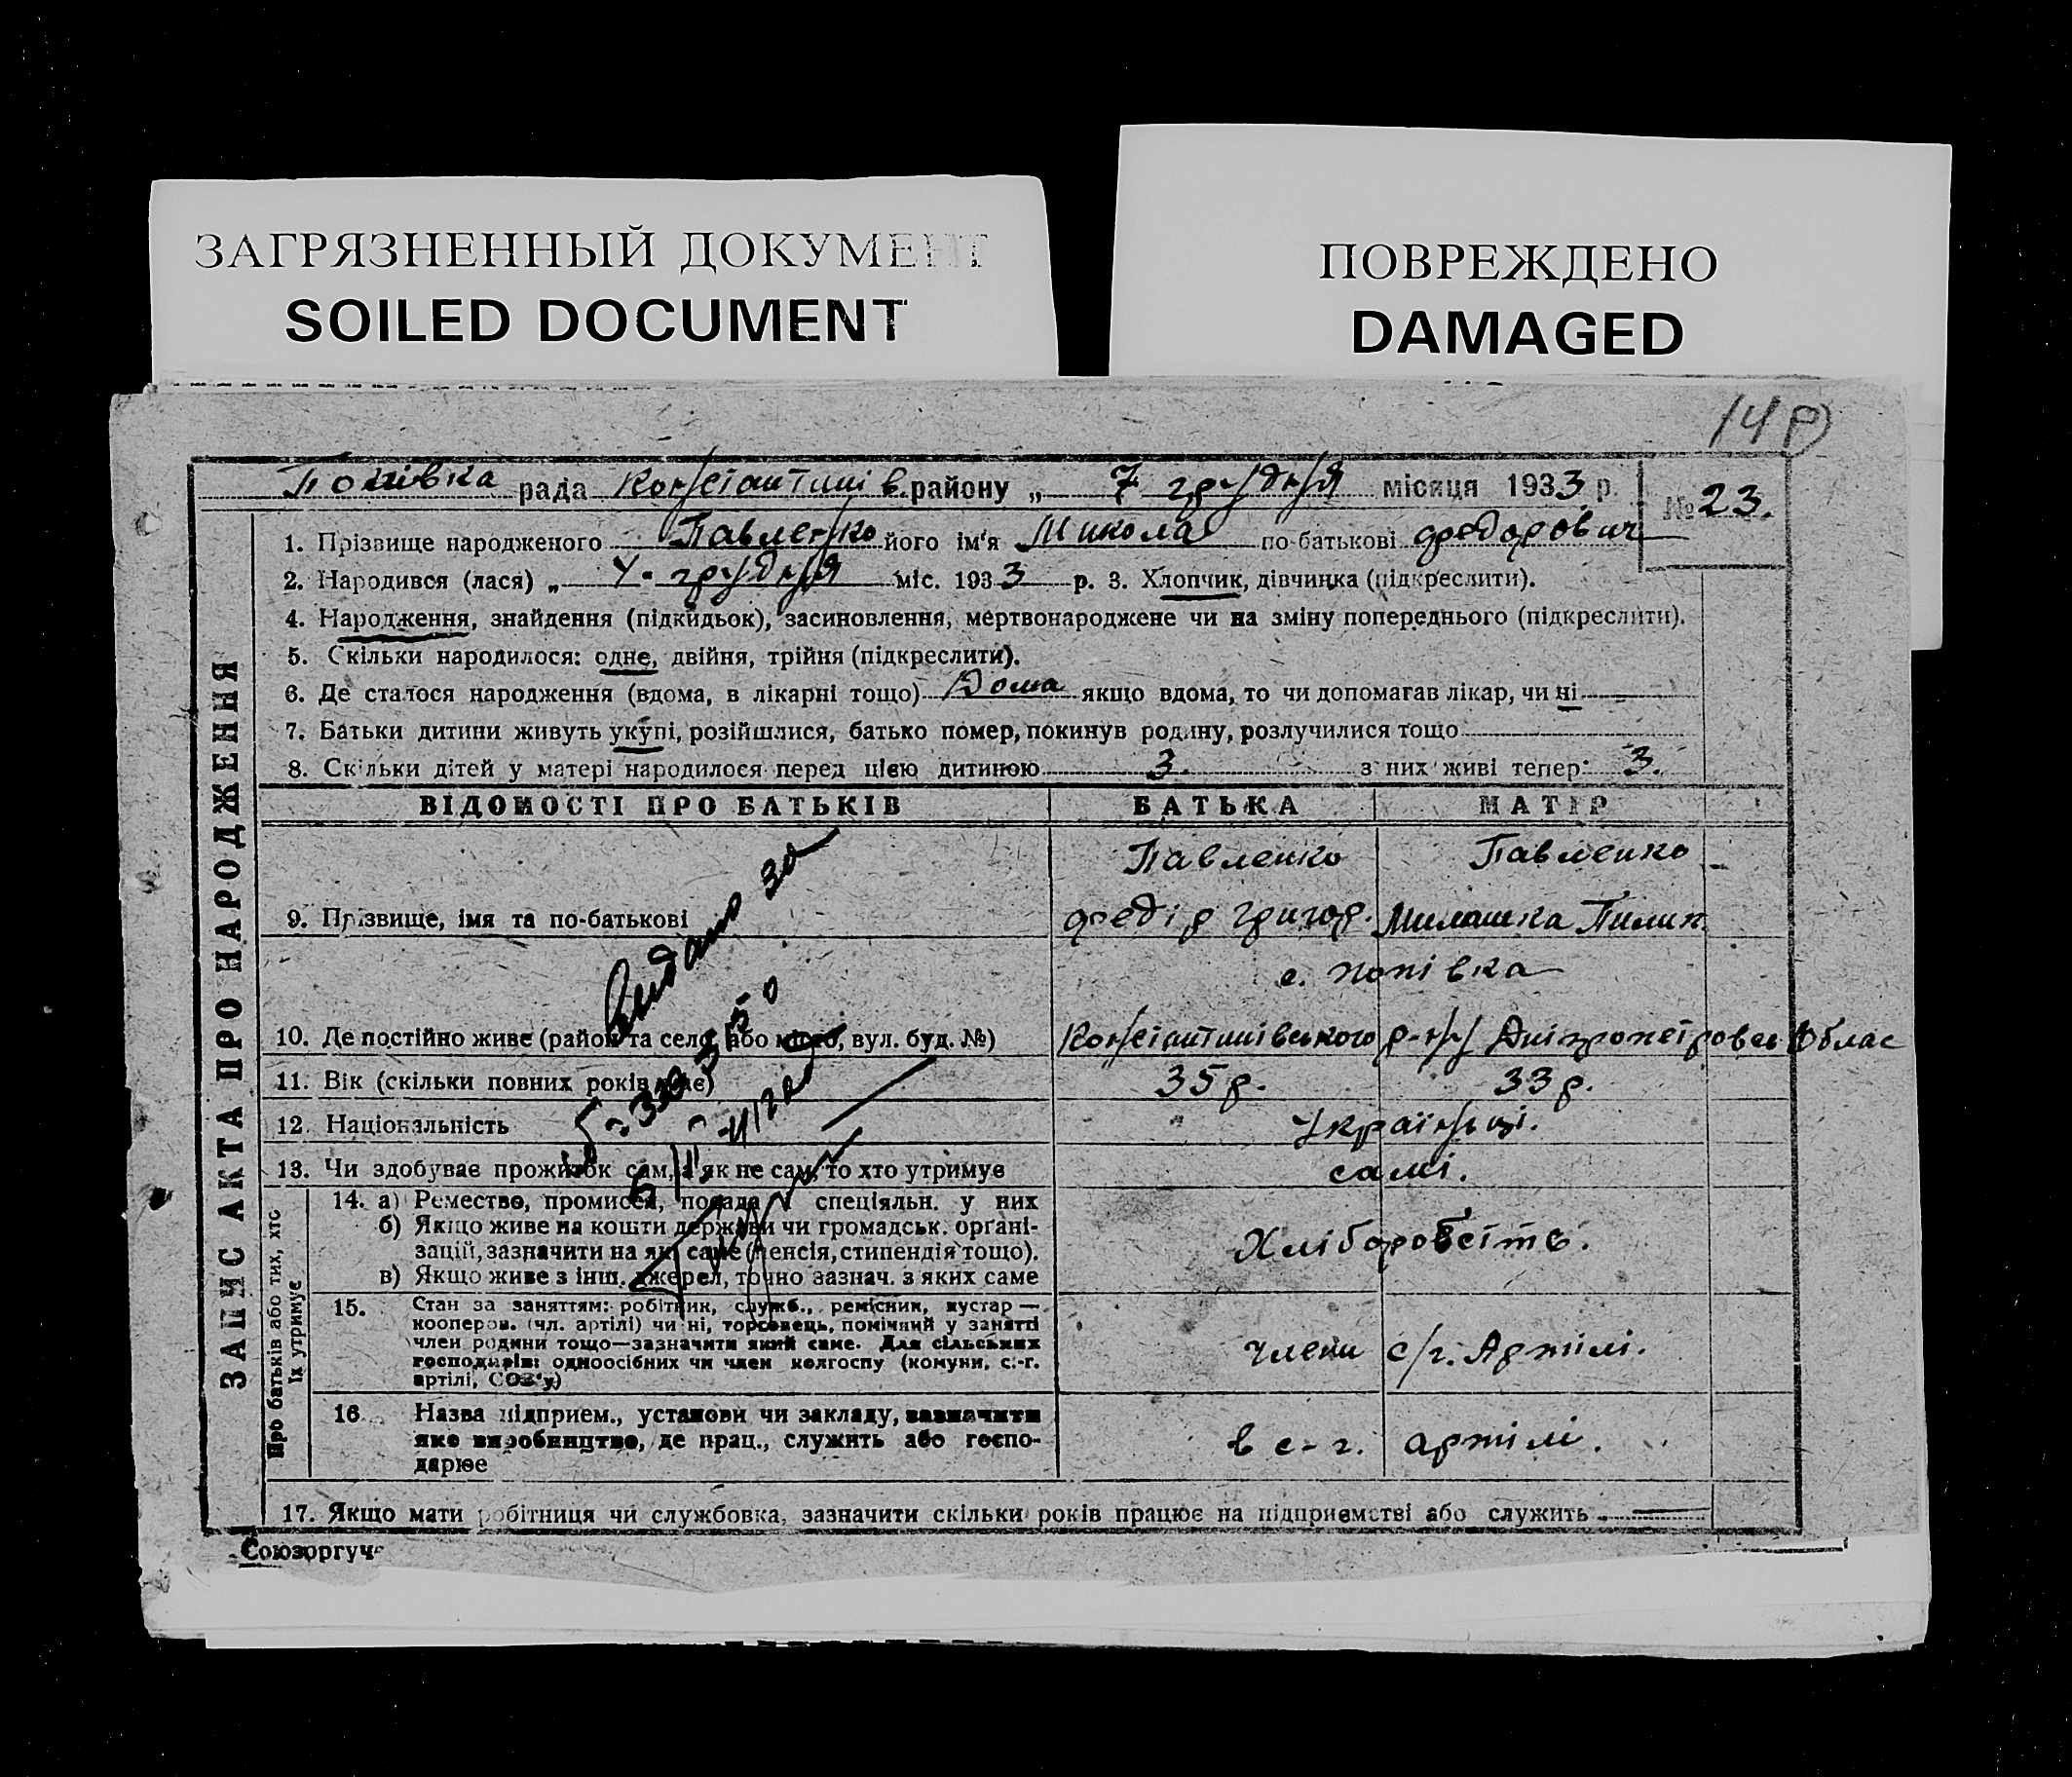 ЗАГРЯЗНЕННЫЙ ДОКУМЕНТ
SOILED DOCUMENT
ПОВРЕЖДЕНО
DAMAGED
14
Попівка рада Констіантинів. району „ 7 грудня місяця 1933 р. № 23.
1. Прізвище народженого Павленко його ім'я Микола по-батькові Федорович
2. Народився (лася) „ 4. грудня міс. 1933 р. 3. Хлопчик, дівчинка (підкреслити).
4. Народження, знайдення (підкидьок), засиновлення, мертвонароджене чи на зміну попереднього (підкреслити).
5. Скільки народилося: одне, двійня, трійня (підкреслити).
6. Де сталося народження (вдома, в лікарні тощо) Дома якщо вдома, то чи допомагав лікар, чи ні
7. Батьки дитини живуть укупі, розійшлися, батько помер, покинув родину, розлучилися тощо
8. Скільки дітей у матері народилося перед цією дитиною 3. з них живі тепер: 3.
ЗАПИС АКТА ПРО НАРОДЖЕННЯ
ВІДОМОСТІ ПРО БАТЬКІВ БАТЬКА МАТІР
Павленко Павленко
9. Прізвище, імя та по-батькові Федір Григор. Милашка Пилип.
с. попівка
10. Де постійно живе (район та село, або місто, вул. буд. №) Констіантинівського р-ну Дніпропетровсь Облас
11. Вік (скільки повних років має) 35 р. 33 р.
12. Національність Українці.
13. Чи здобуває прожиток сам, а як не сам, то хто утримує самі.
Про батьків або тих, хто їх утримує
14. а) Ремество, промисел, посада і спеціяльн. у них
б) Якщо живе на кошти держави чи громадськ. орґані-
зацій, зазначити на які саме (пенсія, стипендія тощо).
в) Якщо живе з інш. джерел, точно зазнач. з яких саме
Хліборобств.
15. Стан за заняттям: робітник, служб., ремісник, кустар —
кооперов. (чл. артілі) чи ні, торговець, помічний у занятті
член родини тощо—зазначити який саме. Для сільських
господарів: одноосібних чи член колгоспу (комуни, с.-г.
артілі, СОЗ'у)
члени с/г. Артілі.
16. Назва підприєм., установи чи закладу, зазначити
яке виробництво, де прац., служить або госпо-
дарює
в с-г. артілі.
17. Якщо мати робітниця чи службовка, зазначити скільки років працює на підприємстві або служить
Союзоргуч
Видано за